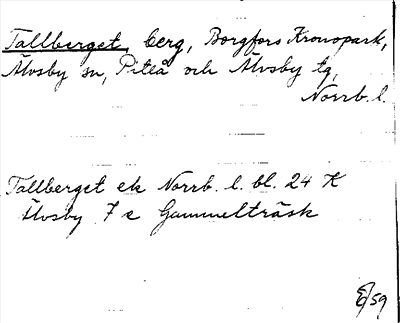 Tallberget, berg, Borgfors Kronopark,
Älvsby sn, Piteå och Älvsby tg,
Norrb. l.
Tallberget ek Norrb. l. bl. 24 K
Älvsby 7 e Gammelträsk
E/59